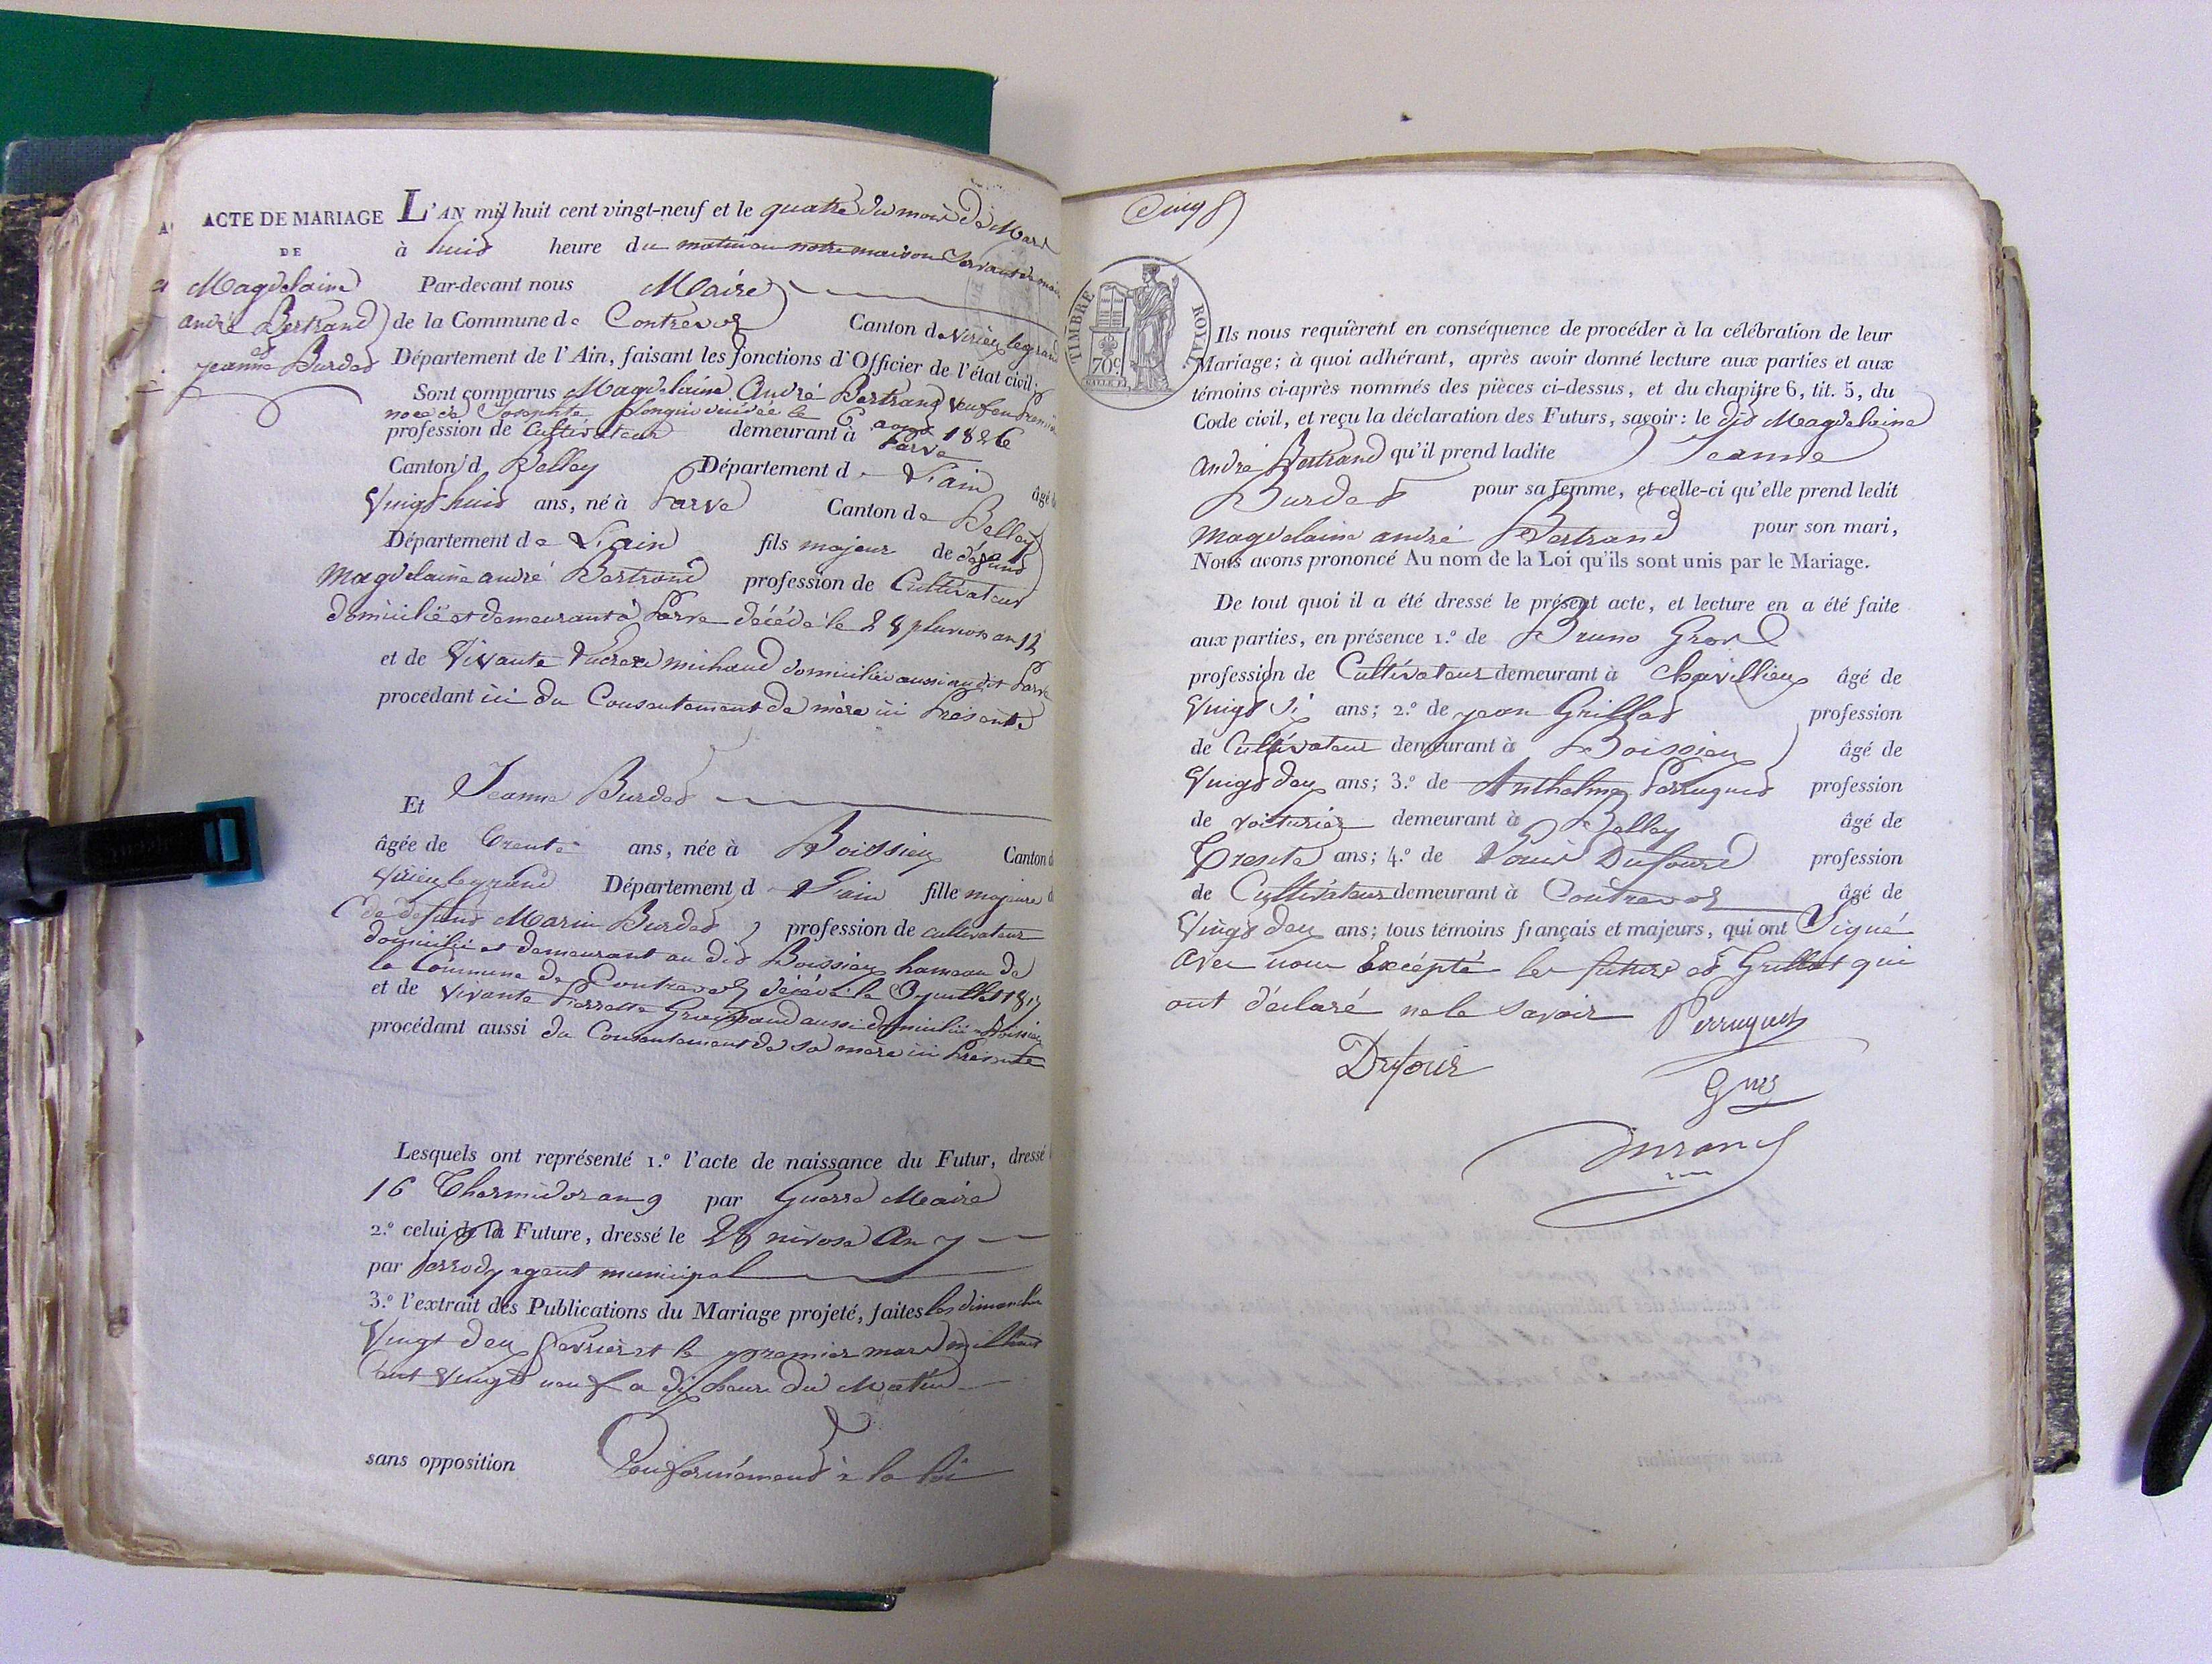 ACTE DE MARIAGE
DE
Magdelaine
andré Bertrand
et
jeanne Burdet
L'AN mil huit cent vingt-neuf et le quatre du mois de Mars
à huit heure du matin en notre maison servant de mairie
Par-devant nous Maire
de la Commune de Contrevoz Canton de Virieu le grand
Département de l'Ain, faisant les fonctions d'Officier de l'état civil;
Sont comparus Magdelaine André Bertrand veuf en premier
noce de Josephte décédée le 6 aout 1826
profession de Cultivateur demeurant à Parve
Canton d Belley Département d L'ain âgé de
Vingt huit ans, né à Parve Canton de Belley
Département de L'ain fils majeur de défunt
Magdelaine andré Bertrand profession de Cultivateur
domicilié et demeurant à Parve décédé le 28 pluviose an 12
et de Vivante michaud domiciliée aussi au dit Parve
procédant ici du Consentement de mère ici Présente
Et Jeanne Burdet
âgée de trente ans, née à Boissieu Canton de
Virieu le grand Département d L'ain fille majeure d
de defunt Marin Burdet profession de cultivateur
domicilié et demeurant au dit Boissieu hameau de
la Commune de Contrevoz décédé le 3 juillet
et de Vivante Pierrette aussi domiciliée a Boissieu
procédant aussi du Consentement de sa mère ici Présente
Lesquels ont représenté 1.º l'acte de naissance du Futur, dressé
16 Thermidor an 9 par Guerre Maire
2.º celui de la Future, dressé le 26 nivose An 7
par Perrody agent municipal
3.º l'extrait des Publications du Mariage projeté, faites les dimanches
Vingt deux fevrier et le premier mars mil huit
Cent Vingt neuf a dix heure du Matin
sans opposition Conformément à la loi
TIMBRE ROYAL
70c.
Ils nous requièrent en conséquence de procéder à la célébration de leur
Mariage; à quoi adhérant, après avoir donné lecture aux parties et aux
témoins ci-après nommés des pièces ci-dessus, et du chapitre 6, tit. 5, du
Code civil, et reçu la déclaration des Futurs, savoir: le dit Magdelaine
andré Bertrand qu'il prend ladite Jeanne
Burdet pour sa femme, et celle-ci qu'elle prend ledit
magdelaine andré Bertrand pour son mari,
Nous avons prononcé Au nom de la Loi qu'ils sont unis par le Mariage.
De tout quoi il a été dressé le présent acte, et lecture en a été faite
aux parties, en présence 1.º de Bruno
profession de Cultivateur demeurant à Chavillieu âgé de
Vingt si ans; 2.º de jean Grillet profession
de Cultivateur demeurant à Boissieu âgé de
Vingt deux ans; 3.º de Anthelme Perruquet profession
de voiturier demeurant à Belley âgé de
Trente ans; 4.º de Louis Dufour profession
de Cultivateur demeurant à Contrevoz âgé de
Vingt deux ans; tous témoins français et majeurs, qui ont Signé
avec nous Excépté les futurs et Grillet qui
ont déclaré ne le savoir Perruquet
Dufour
Durand